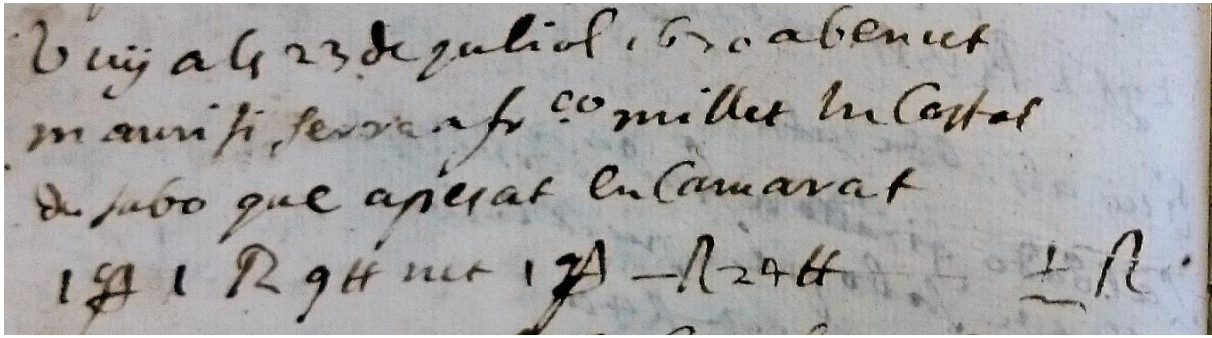 Vuy als 23 de juliol 1630 a benut
maurisi serra a fr.co millet hu Costal
de sabo que a pesat en Camarat
1 q 1 R 9 tt net 1 q — R 24 tt 1 R